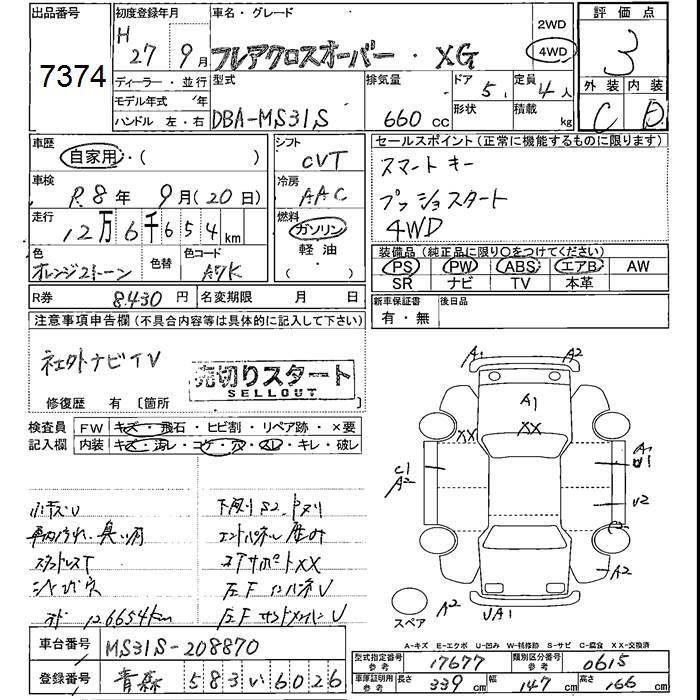 出品番号
7374
初度登録年月
H 27年 9月
車名・グレード
フレアクロスオーバー・XG
2WD
4WD
評価点
3
外装 内装
C D
ディーラー・並行
モデル年式 年
ハンドル 左・右
型式
DBA-MS31S
排気量
660 cc
ドア 5
形状
定員 4人
積載 kg
車歴
自家用・( )
車検
R8年 9月(20日)
走行
12万6千654km
色
オレンジ2トーン
色替
色コード
A7K
シフト
CVT
冷房
AAC
燃料
ガソリン
軽油
( )
セールスポイント(正常に機能するものに限ります)
スマートキー
プッシュスタート
4WD
装備品(純正品に限り○をつけてください)
PS PW ABS エアB AW
SR ナビ TV 本革
R券 8430円
名変期限 月 日
新車保証書
有・無
後日品
注意事項申告欄(不具合内容等は具体的に記入して下さい)
社外ナビTV
売切りスタート
SELLOUT
修復歴 有 [箇所
検査員
記入欄
FW キズ・飛石・ヒビ割・リペア跡・×要
内装 キズ・汚レ・コゲ・穴・スレ・キレ・破レ
小キズU
車内汚れ・臭い有
下廻りS2
コアサポートXX
左FインパネU
126654km
左FサイドメンバーU
A1 A2
A1
XX XX
C1
A2
A1
U1
U2
A2
A2
UA1
スペア
A-キズ E-エクボ U-凹み W-補修跡 S-サビ C-腐食 XX-交換済
車台番号
MS31S-208870
登録番号
青森 583い6026
型式指定番号
参考
17677
類別区分番号
参考
0615
車庫証明用
参考
長さ 339cm
幅 147cm
高さ 166cm